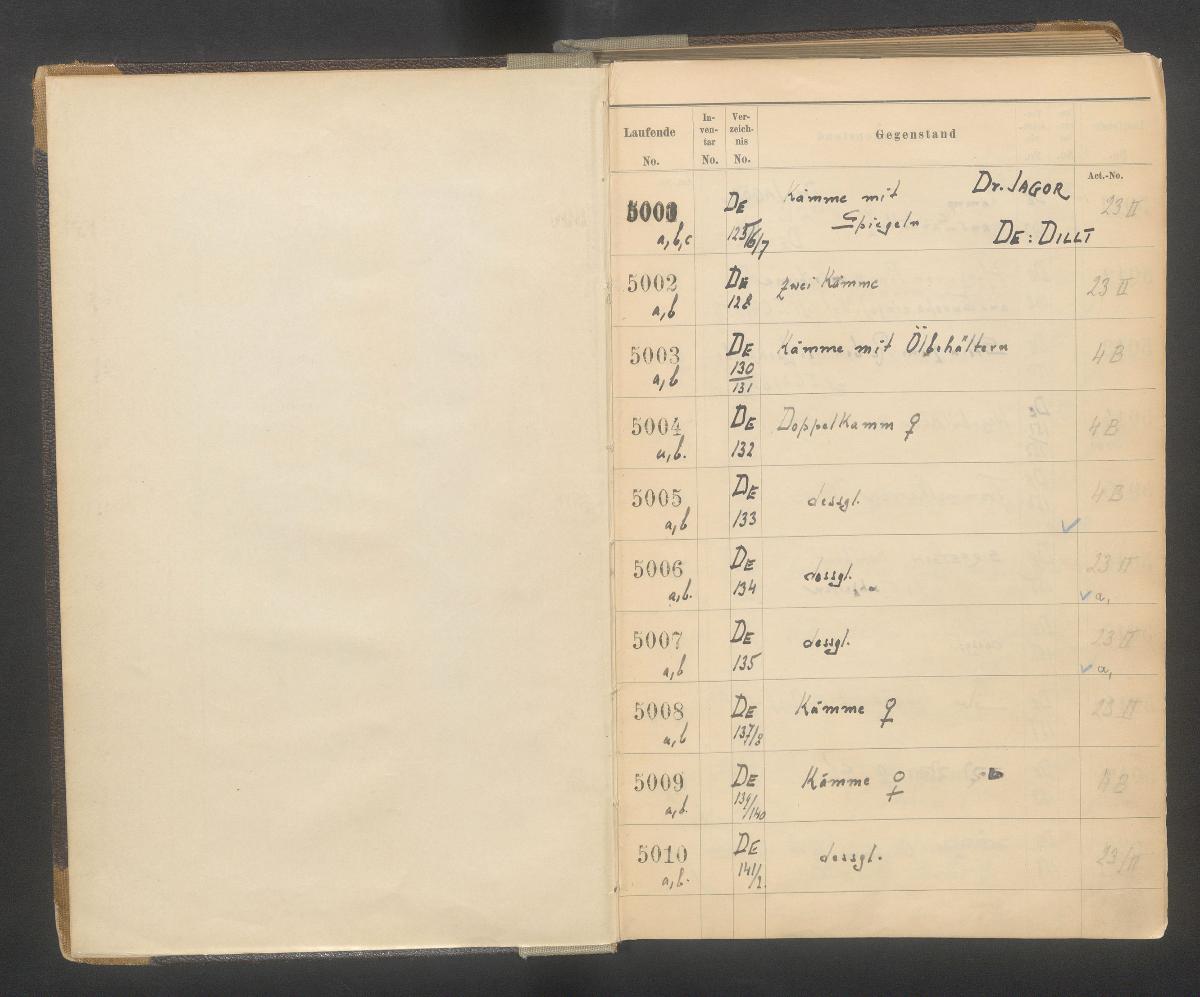 Laufende No. In-ven-tar No. Ver-zeich-nis No. Gegenstand
Act.-No.
5001 DE Kämme mit Dr. JAGOR 23 II
a,b,c 125/6/7 Spiegeln DE: DILLT
5002 DE zwei Kämme 23 II
a,b 128
5003 DE Kämme mit Ölbehältern 4B
a,b 130/131
5004 DE Doppelkamm ♀ 4B
a,b. 132
5005 DE dessgl. 4B
a,b 133 ✓
5006 DE dessgl. 23 II
a,b. 134 ✓ a,
5007 DE dessgl. 23 II
a,b 135 ✓ a,
5008 DE Kämme ♀ 23 II
a,b 137/8
5009 DE Kämme ♀ 4B
a,b. 139/140
5010 DE dessgl. 23/II
a,b. 141/2.